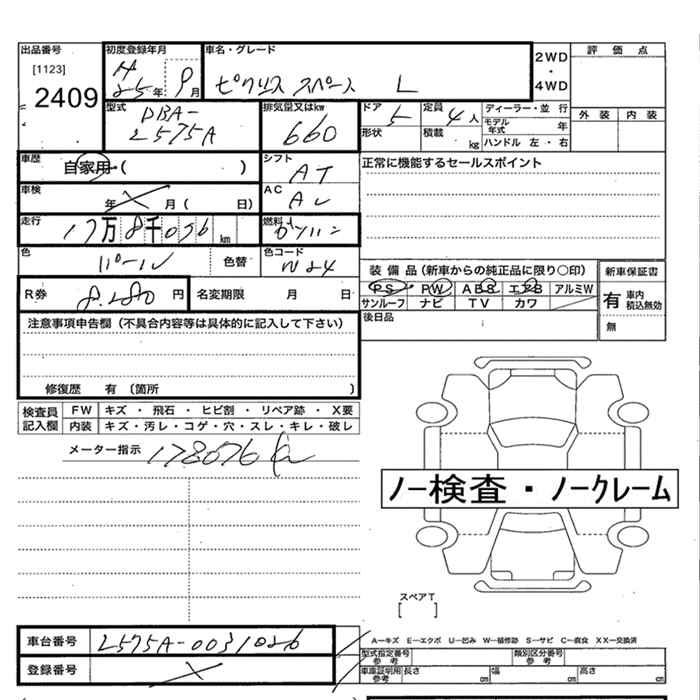 出品番号 初度登録年月 車名・グレード 2WD・4WD 評価点
[1123] H25年 9月 ピクシス スペース L
2409 型式 排気量又はkw ドア 5 定員 4人 ディーラー・並行 外装 内装
DBA- 660 形状 積載 kg モデル年式 年
L575A ハンドル 左・右
車歴 自家用・( ) シフト AT 正常に機能するセールスポイント
車検 年 月 ( 日) AC
走行 17万8千076km 燃料 ガソリン
色 パール 色替 色コード W24
装備品(新車からの純正品に限り〇印) 新車保証書
PS PW ABS エアB アルミW 有 車内積込無効
サンルーフ ナビ TV カワ 無
R券 8,280円 名変期限 月 日
後日品
注意事項申告欄(不具合内容等は具体的に記入して下さい)
修復歴 有 〔箇所 〕
検査員記入欄 FW キズ・飛石・ヒビ割・リペア跡・X要
内装 キズ・汚レ・コゲ・穴・スレ・キレ・破レ
メーター指示 178076
ノー検査・ノークレーム
スペアT
[ ]
A―キズ E―エクボ U―凹み W―補修跡 S―サビ C―腐食 XX―交換済
車台番号 L575A-0031026
型式指定番号 参考 類別区分番号 参考
登録番号
車庫証明用 参考 長さ cm 幅 cm 高さ cm